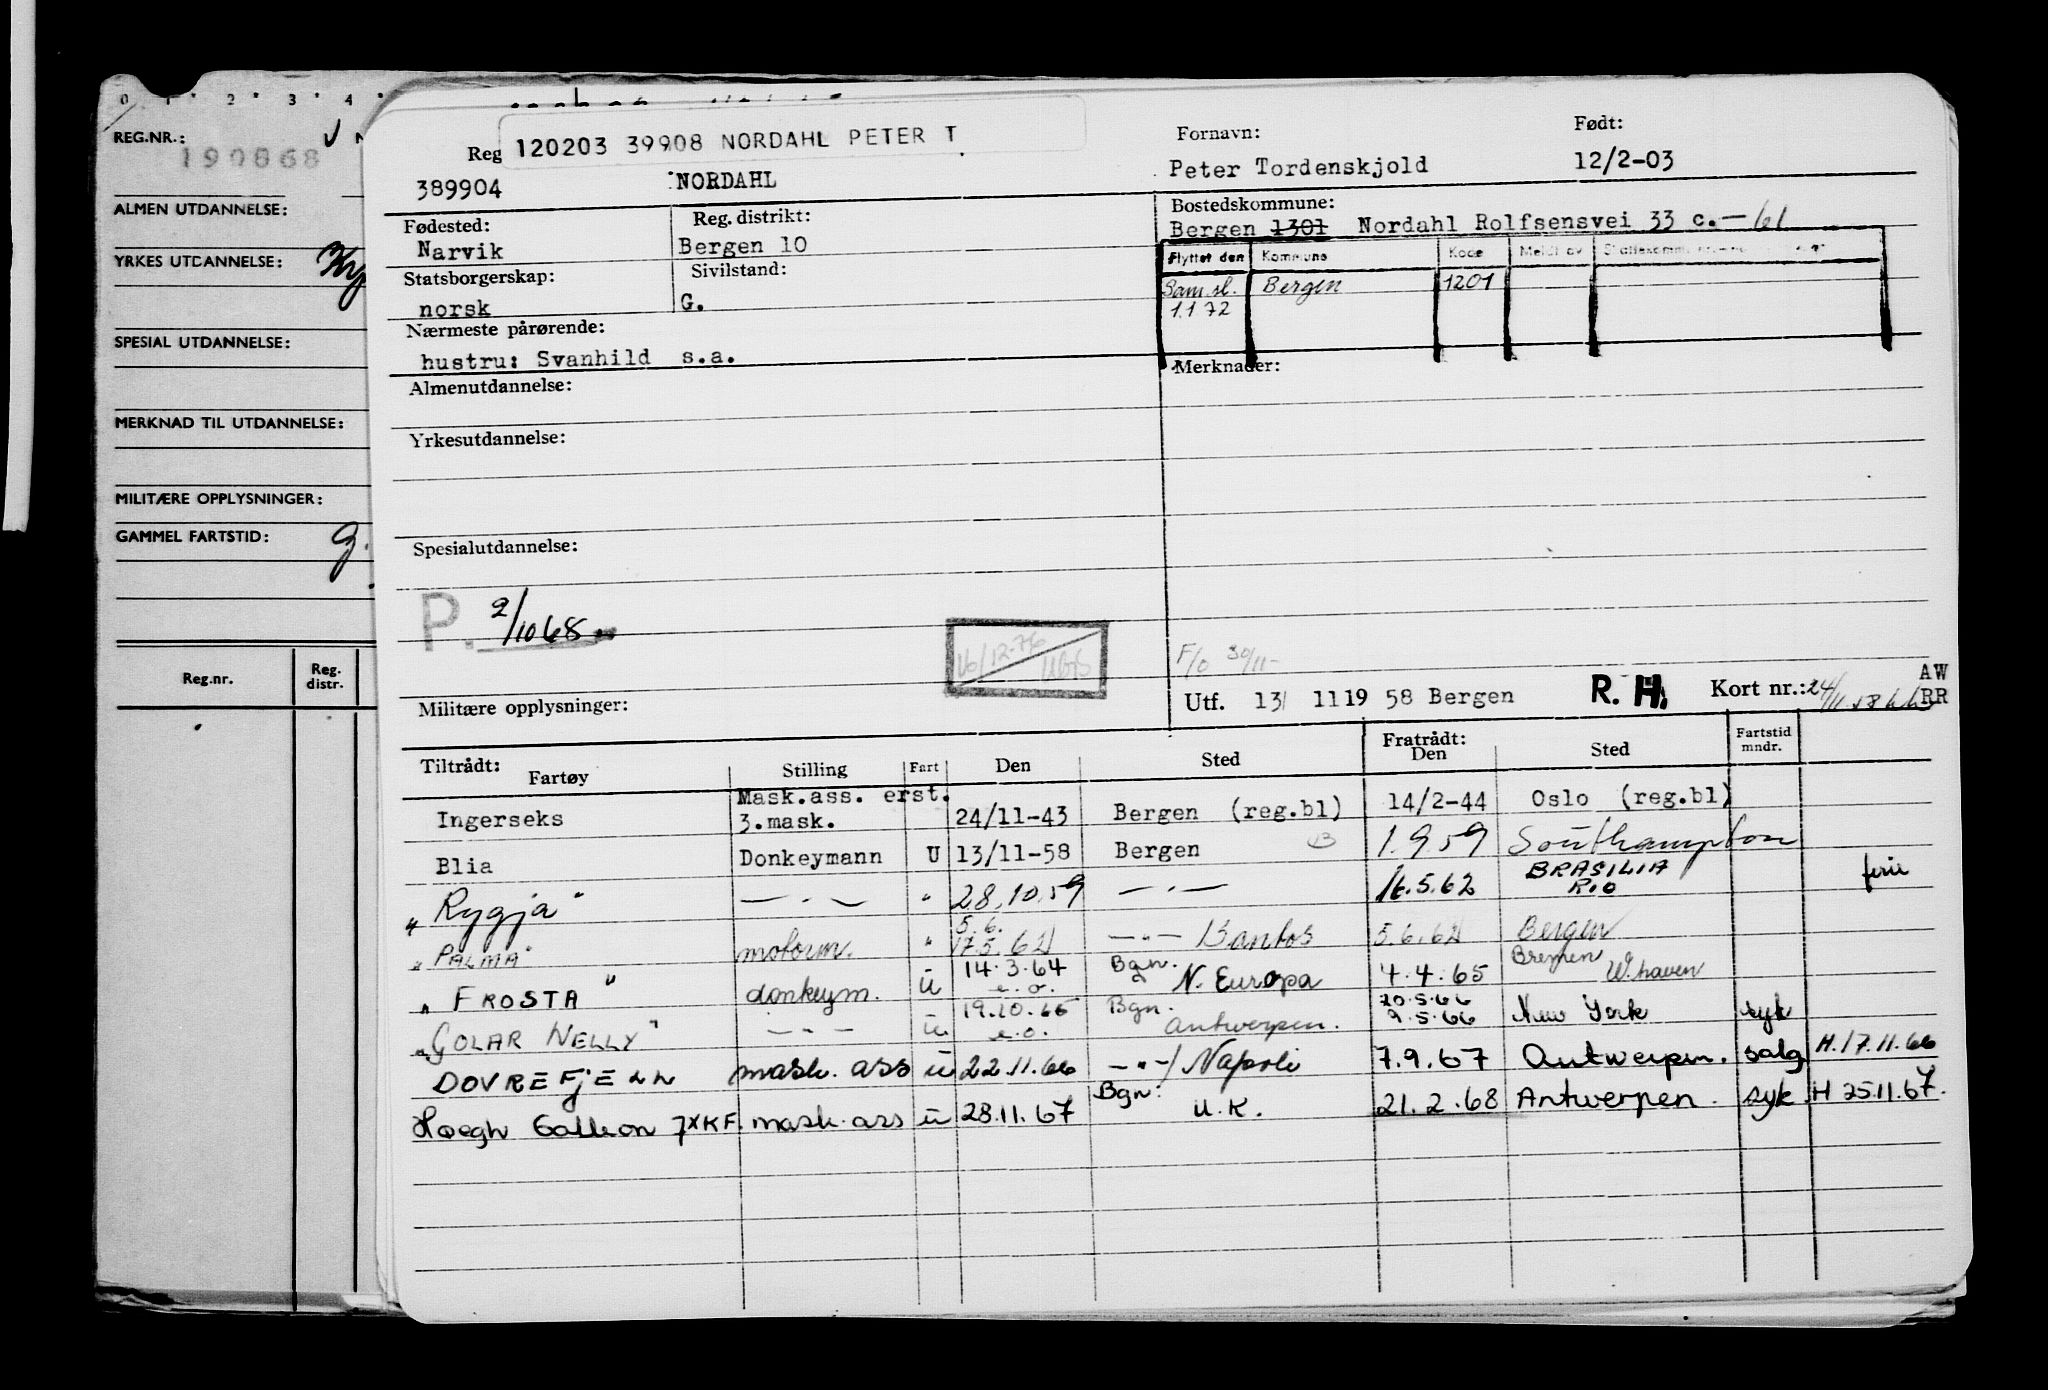 0 1 2 3 4
REG.NR.:
190868
ALMEN UTDANNELSE:
YRKES UTDANNELSE:
SPESIAL UTDANNELSE:
MERKNAD TIL UTDANNELSE:
MILITÆRE OPPLYSNINGER:
GAMMEL FARTSTID: g.
Reg.nr. Reg. distr.
Reg
120203 39908 NORDAHL PETER T
389904 NORDAHL
Fornavn: Født:
Peter Tordenskjold 12/2-03
Fødested: Reg. distrikt:
Narvik Bergen 10
Bostedskommune:
Bergen 1301 Nordahl Rolfsensvei 33 c.—61
Statsborgerskap: Sivilstand:
norsk G.
Flyttet den Kommune Kode Meldt av
Sam.sl. Bergen 1201
1.1 72
Nærmeste pårørende:
hustru: Svanhild s.a.
Merknader:
Almenutdannelse:
Yrkesutdannelse:
Spesialutdannelse:
P. 2/10 68
F/O 30/11-
Militære opplysninger:
Utf. 13/ 11 19 58 Bergen R. H. Kort nr.: AW
RR
Tiltrådt: Fartøy Stilling Fart Den Sted Fratrådt: Den Sted Fartstid mndr.
Ingerseks Mask.ass. erst. 3.mask. 24/11-43 Bergen (reg.bl) 14/2-44 Oslo (reg.bl)
Blia Donkeymann U 13/11-58 Bergen 1.9.59 Southampton
"Rygja" — . — " 28.10.59 — . — 16.5.62 BRASILIA RIO ferie
"PALMA" motorm. " 5.6. 17.5.62 — " — Santos 5.6.62 Bergen
"FROSTA" donkeym. u 14.3.64 e.o. Bgn. N. Europa 4.4.65 Bremen W.haven
"GOLAR NELLY" — " — u 19.10.65 e.o. Bgn. Antwerpen. 20.5.66 9.5.66 New York syk
DOVREFJELL mask. ass u 22.11.66 — " —/ Napoli 7.9.67 Antwerpen. salg H.17.11.66
Høegh Galleon JXKF. mask. ass u 28.11.67 Bgn. U.K. 21.2.68 Antwerpen. syk H 25.11.67.